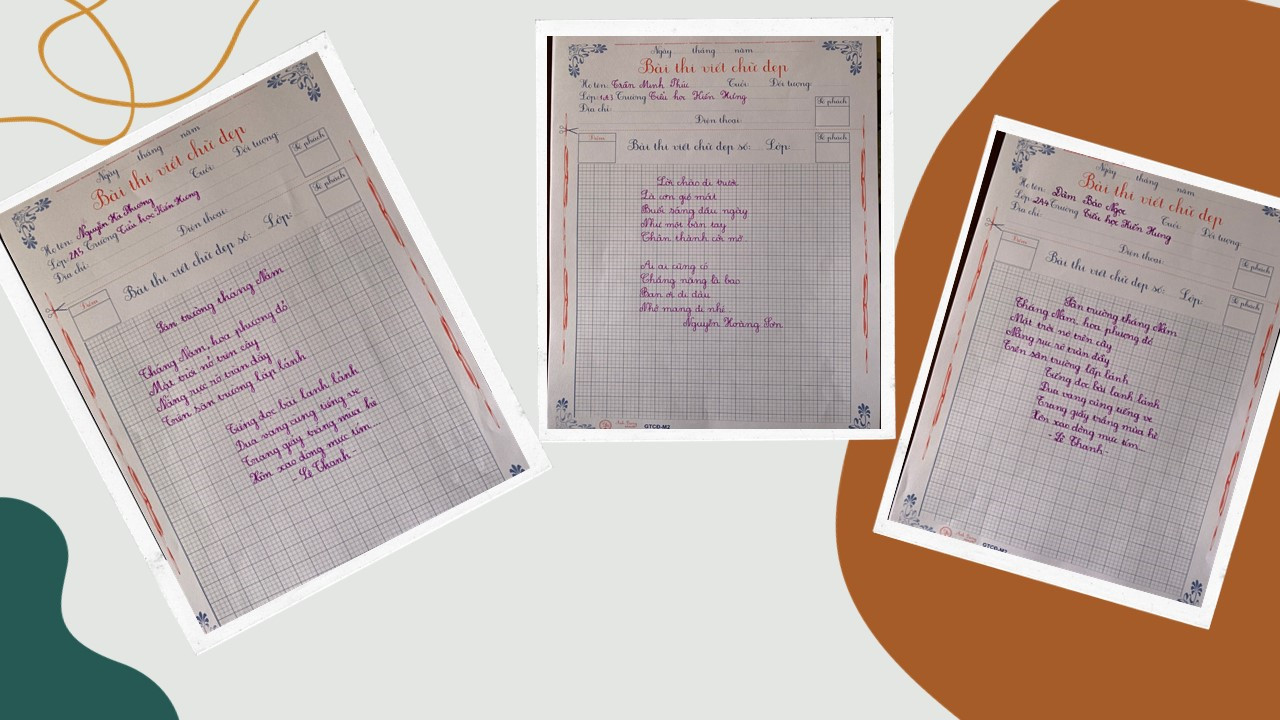 Ngày tháng năm
Bài thi viết chữ đẹp
Họ tên: Nguyễn Hà Phương Tuổi: Đối tượng:
Lớp: 2A5 Trường Tiểu học Kiến Hưng
Địa chỉ: Điện thoại:
Số phách
Điểm
Bài thi viết chữ đẹp số: Lớp:
Số phách
Sân trường tháng Năm
Tháng Năm, hoa phượng đỏ
Mặt trời nở trên cây
Nắng rực rỡ tràn đầy
Trên sân trường lấp lánh
Tiếng đọc bài lanh lảnh
Đua vang cùng tiếng ve
Trang giấy trắng mùa hè
Xôn xao dòng mực tím...
- Lê Thanh -
Ngày tháng năm
Bài thi viết chữ đẹp
Họ tên: Trần Minh Phúc Tuổi: Đối tượng:
Lớp: 1A3 Trường Tiểu học Kiến Hưng
Địa chỉ:
Số phách
Điện thoại:
Điểm
Bài thi viết chữ đẹp số: Lớp:
Số phách
Lời chào đi trước
Là cơn gió mát
Buổi sáng đầu ngày
Như một bàn tay
Chân thành cởi mở
Ai ai cũng có
Chẳng nặng là bao
Bạn ơi đi đâu
Nhớ mang đi nhé
Nguyễn Hoàng Sơn
GTCĐ-M2
Ngày tháng năm
Bài thi viết chữ đẹp
Họ tên: Đàm Bảo Ngọc Tuổi: Đối tượng:
Lớp: 2A4 Trường Tiểu học Kiến Hưng
Địa chỉ: Điện thoại:
Số phách
Điểm
Bài thi viết chữ đẹp số: Lớp:
Số phách
Sân trường tháng Năm
Tháng Năm, hoa phượng đỏ
Mặt trời nở trên cây
Nắng rực rỡ tràn đầy
Trên sân trường lấp lánh
Tiếng đọc bài lanh lảnh
Đua vang cùng tiếng ve
Trang giấy trắng mùa hè
Xôn xao dòng mực tím...
- Lê Thanh -
GTCĐ-M2